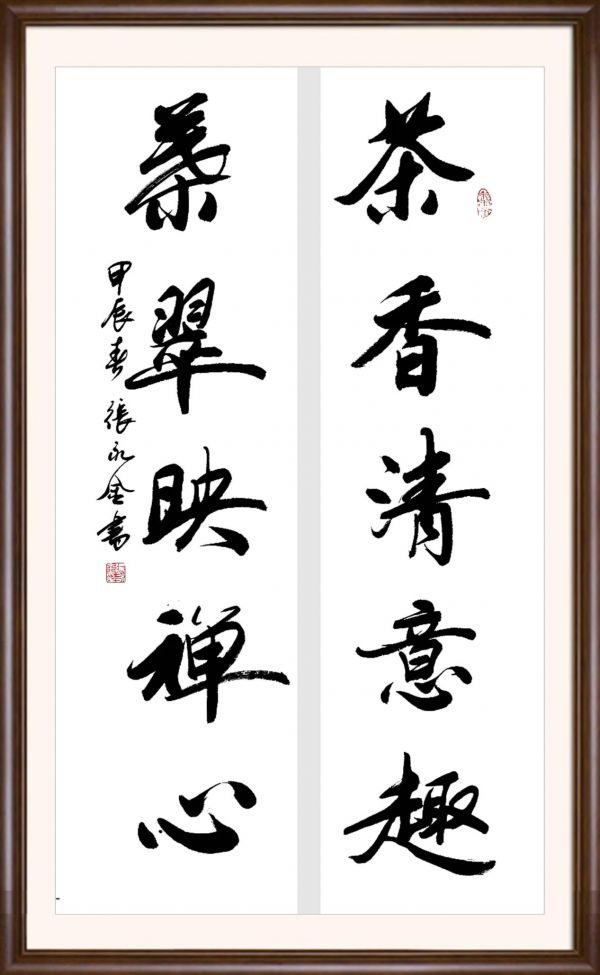 茶香清意趣
葉翠映禅心
甲辰春張永金書